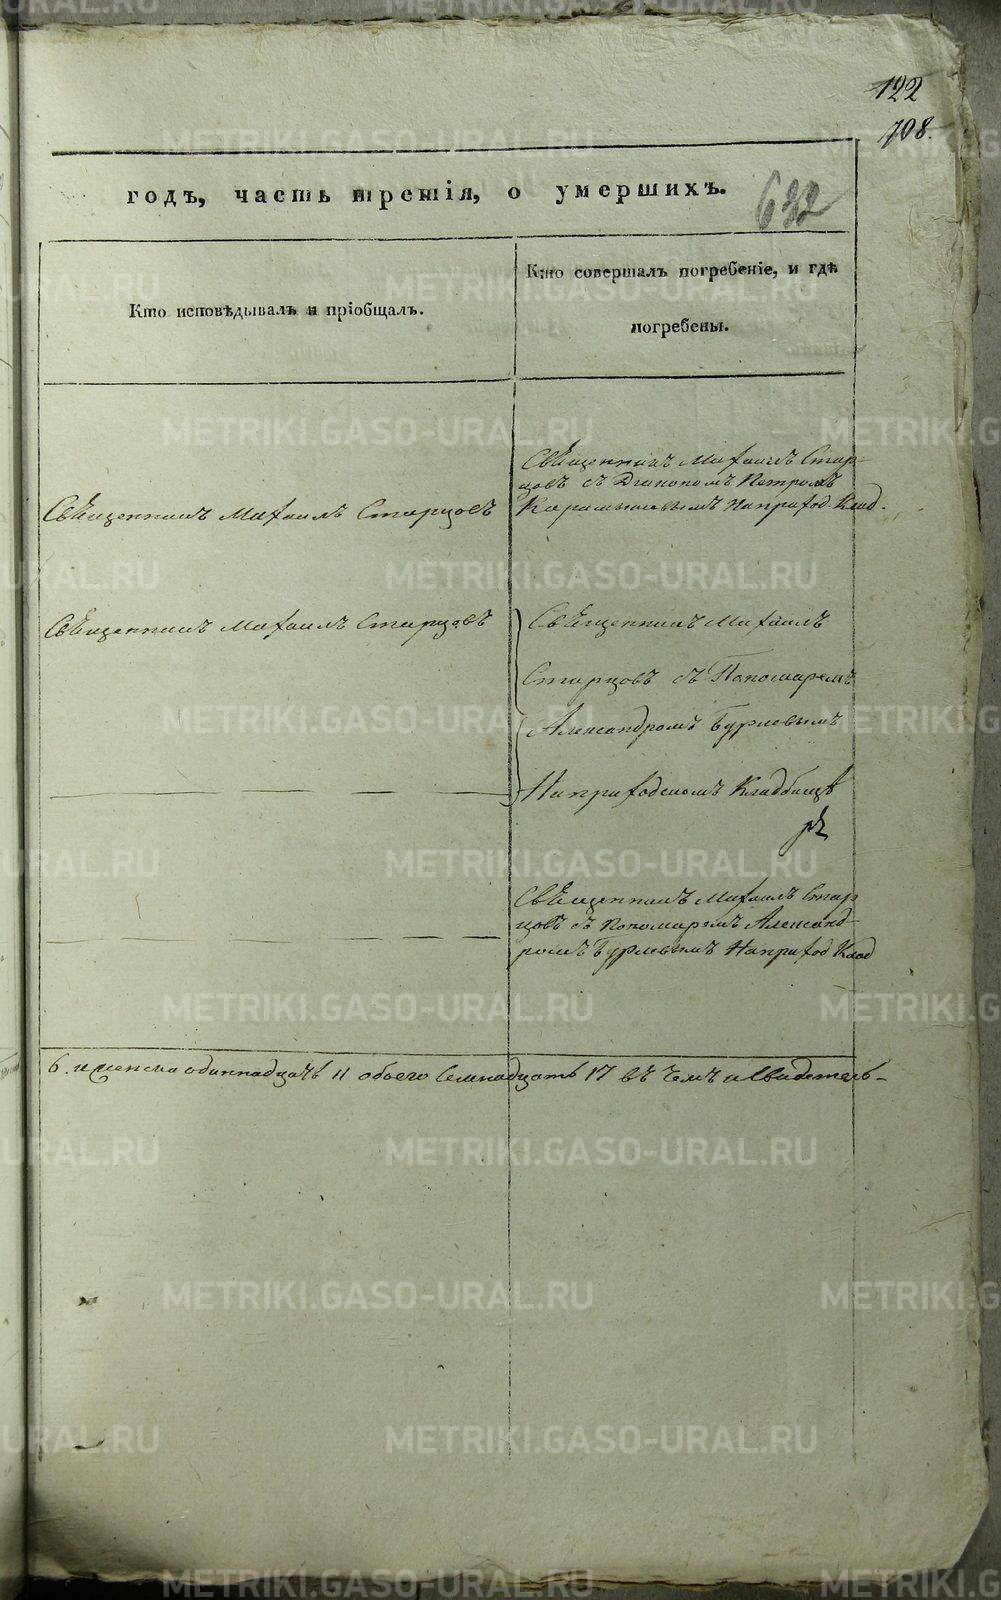 122
708.
годъ, часть третія, о умершихъ.
632
Кто исповѣдывалъ и пріобщалъ.
Кто совершалъ погребеніе, и гдѣ
погребены.
Священникъ Михаилъ Стар-
цовъ съ Діакономъ Петромъ
Священникъ Михаилъ Старцовъ
Наприход. Клад.
Священникъ Михаилъ Старцовъ
Священникъ Михаилъ
Старцовъ съ Пономаремъ
Александромъ Бурлевымъ
Наприходскомъ Кладбищѣ
Священникъ Михаилъ Стар
цовъ съ Пономаремъ Александ-
ромъ Бурлевымъ Наприход Клад
6. и женска одиннадцать 11 обоего семнадцать 17 въ чемъ и свидетель-
METRIKI.GASO-URAL.RU